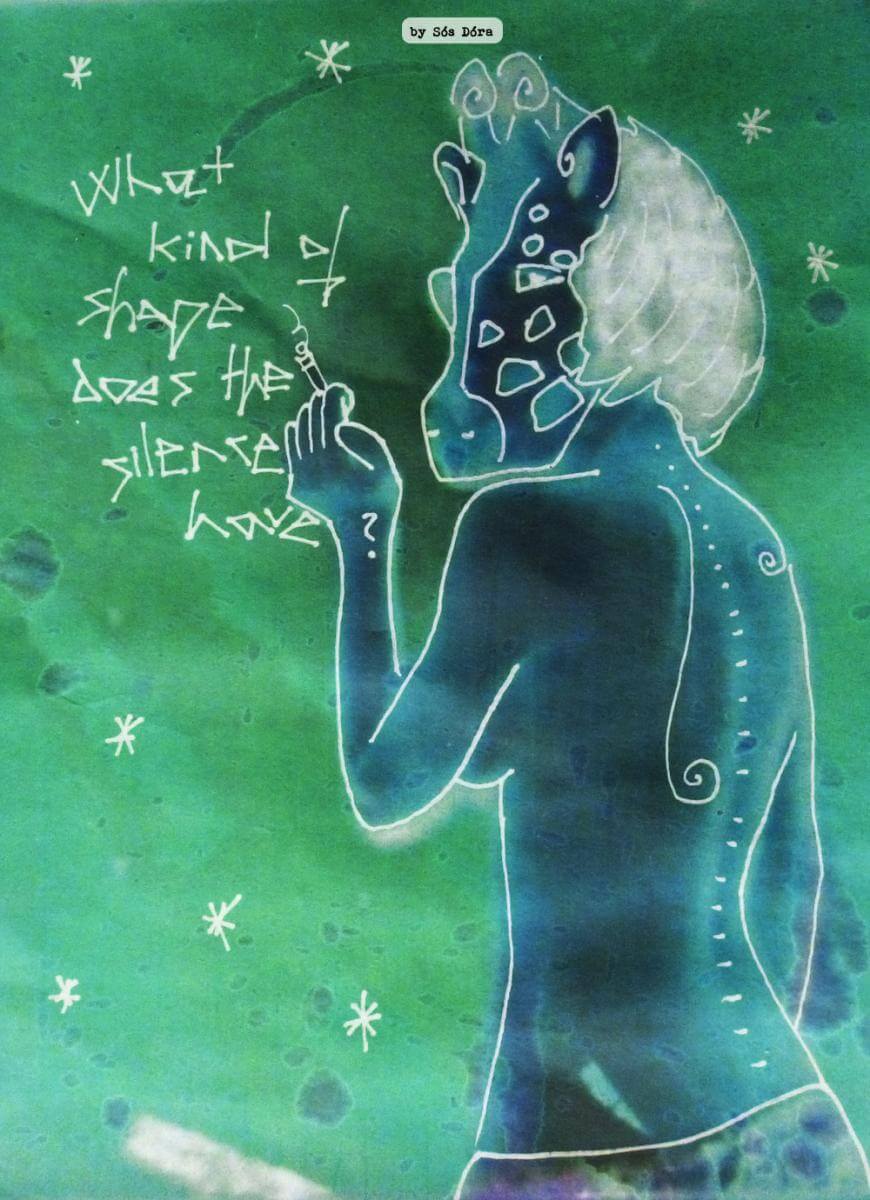 by Sós Dóra
What
kind of
shape
does the
silence
have ?